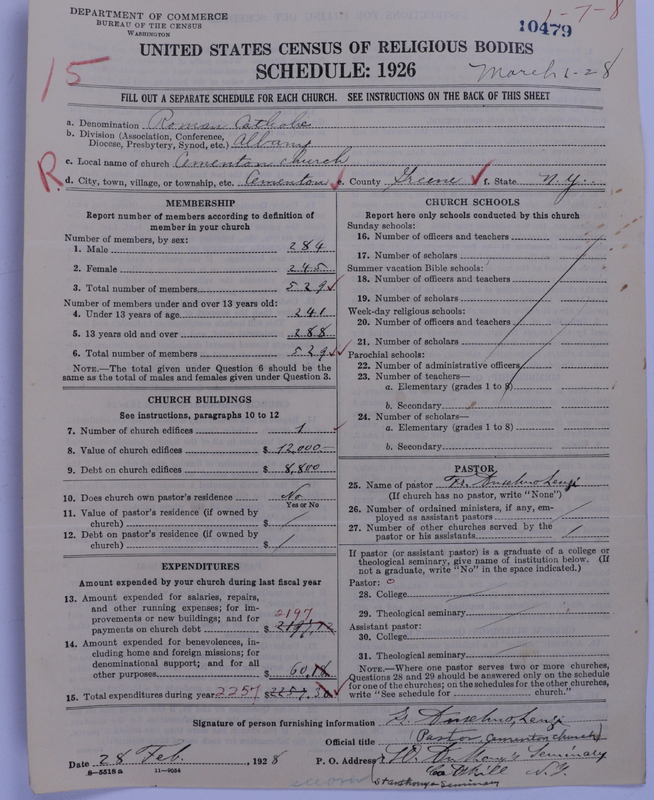 DEPARTMENT OF COMMERCE
BUREAU OF THE CENSUS
WASHINGTON
1-7-8
10479
15
UNITED STATES CENSUS OF RELIGIOUS BODIES
SCHEDULE: 1926
March 1-28
FILL OUT A SEPARATE SCHEDULE FOR EACH CHURCH. SEE INSTRUCTIONS ON THE BACK OF THIS SHEET
a. Denomination Roman Catholic
b. Division (Association, Conference, Diocese, Presbytery, Synod, etc.) Albany
R
c. Local name of church Cementon church
d. City, town, village, or township, etc. Cementon e. County Greene f. State N.Y.
MEMBERSHIP
Report number of members according to definition of
member in your church
Number of members, by sex:
1. Male 284
2. Female 245
3. Total number of members 529
Number of members under and over 13 years old:
4. Under 13 years of age 241
5. 13 years old and over 288
6. Total number of members 529
NOTE.—The total given under Question 6 should be
same as the total of males and females given under Question 3.
CHURCH BUILDINGS
See instructions, paragraphs 10 to 12
7. Number of church edifices 1
8. Value of church edifices $ 12,000
9. Debt on church edifices $ 8,800
10. Does church own pastor's residence No
Yes or No
11. Value of pastor's residence (if owned by
church) $ /
12. Debt on pastor's residence (if owned by
church) $ /
EXPENDITURES
Amount expended by your church during last fiscal year
13. Amount expended for salaries, repairs,
and other running expenses; for im-
provements or new buildings; and for
payments on church debt $ 2197
14. Amount expended for benevolences, in-
cluding home and foreign missions; for
denominational support; and for all
other purposes $ 60.18
15. Total expenditures during year 2257 $ 2257.30
CHURCH SCHOOLS
Report here only schools conducted by this church
Sunday schools:
16. Number of officers and teachers
17. Number of scholars
Summer vacation Bible schools:
18. Number of officers and teachers
19. Number of scholars
Week-day religious schools:
20. Number of officers and teachers
21. Number of scholars
Parochial schools:
22. Number of administrative officers
23. Number of teachers—
a. Elementary (grades 1 to 8)
b. Secondary
24. Number of scholars—
a. Elementary (grades 1 to 8)
b. Secondary
PASTOR
25. Name of pastor Fr. Anselmo Lenzi
(If church has no pastor, write "None")
26. Number of ordained ministers, if any, em-
ployed as assistant pastors /
27. Number of other churches served by the
pastor or his assistants 1
If pastor (or assistant pastor) is a graduate of a college or
theological seminary, give name of institution below. (If
not a graduate, write "No" in the space indicated.)
Pastor: o
28. College
29. Theological seminary
Assistant pastor:
30. College
31. Theological seminary
NOTE.—Where one pastor serves two or more churches,
Questions 28 and 29 should be answered only on the schedule
for one of the churches; on the schedules for the other churches,
write "See schedule for church."
Signature of person furnishing information F. Anselmo Lenzi
Official title Pastor (Cementon church)
Date 28 Feb., 1928 P. O. Address St. Anthony's Seminary
Catskill N.Y.
St Anthonys Seminary
8-5518a 11-9054